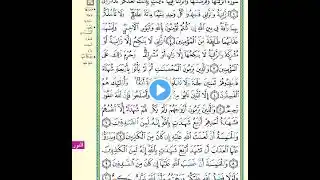 سُورَةٌ أَنزَلْنَٰهَا وَفَرَضْنَٰهَا وَأَنزَلْنَا فِيهَآ ءَايَٰتٍۭ بَيِّنَٰتٍ لَّعَلَّكُمْ تَذَكَّرُونَ
١ ٱلزَّانِيَةُ وَٱلزَّانِى فَٱجْلِدُوا۟ كُلَّ وَٰحِدٍ مِّنْهُمَا مِا۟ئَةَ جَلْدَةٍ وَلَا تَأْخُذْكُم
بِهِمَا رَأْفَةٌ فِى دِينِ ٱللَّهِ إِن كُنتُمْ تُؤْمِنُونَ بِٱللَّهِ وَٱلْيَوْمِ ٱلْءَاخِرِ وَلْيَشْهَدْ
عَذَابَهُمَا طَآئِفَةٌ مِّنَ ٱلْمُؤْمِنِينَ ٢ ٱلزَّانِى لَا يَنكِحُ إِلَّا زَانِيَةً أَوْ
مُشْرِكَةً وَٱلزَّانِيَةُ لَا يَنكِحُهَآ إِلَّا زَانٍ أَوْ مُشْرِكٌ وَحُرِّمَ ذَٰلِكَ
عَلَى ٱلْمُؤْمِنِينَ ٣ وَٱلَّذِينَ يَرْمُونَ ٱلْمُحْصَنَٰتِ ثُمَّ لَمْ يَأْتُوا۟ بِأَرْبَعَةِ شُهَدَآءَ
فَٱجْلِدُوهُمْ ثَمَٰنِينَ شَهَٰدَةً أَبَدًا وَأُو۟لَٰٓئِكَ هُمُ
ٱلْفَٰسِقُونَ ٤ إِلَّا ٱلَّذِينَ تَابُوا۟ مِنۢ بَعْدِ ذَٰلِكَ وَأَصْلَحُوا۟ فَإِنَّ ٱللَّهَ غَفُورٌ
رَّحِيمٌ ٥ وَٱلَّذِينَ يَرْمُونَ أَزْوَٰجَهُمْ وَلَمْ يَكُن لَّهُمْ شُهَدَآءُ إِلَّآ أَنفُسُهُمْ
فَشَهَٰدَةُ أَحَدِهِمْ أَرْبَعُ شَهَٰدَٰتٍۭ بِٱللَّهِ إِنَّهُۥ لَمِنَ ٱلصَّٰدِقِينَ ٦
وَٱلْخَٰمِسَةُ أَنَّ لَعْنَتَ ٱللَّهِ عَلَيْهِ إِن كَانَ مِنَ ٱلْكَٰذِبِينَ ٧
وَيَدْرَؤُا۟ عَنْهَا ٱلْعَذَابَ أَن تَشْهَدَ أَرْبَعَ شَهَٰدَٰتٍۭ بِٱللَّهِ إِنَّهُۥ لَمِنَ ٱلْكَٰذِبِينَ
٨ وَٱلْخَٰمِسَةَ أَنَّ غَضَبَ ٱللَّهِ عَلَيْهَآ إِن كَانَ مِنَ ٱلصَّٰدِقِينَ ٩
النور